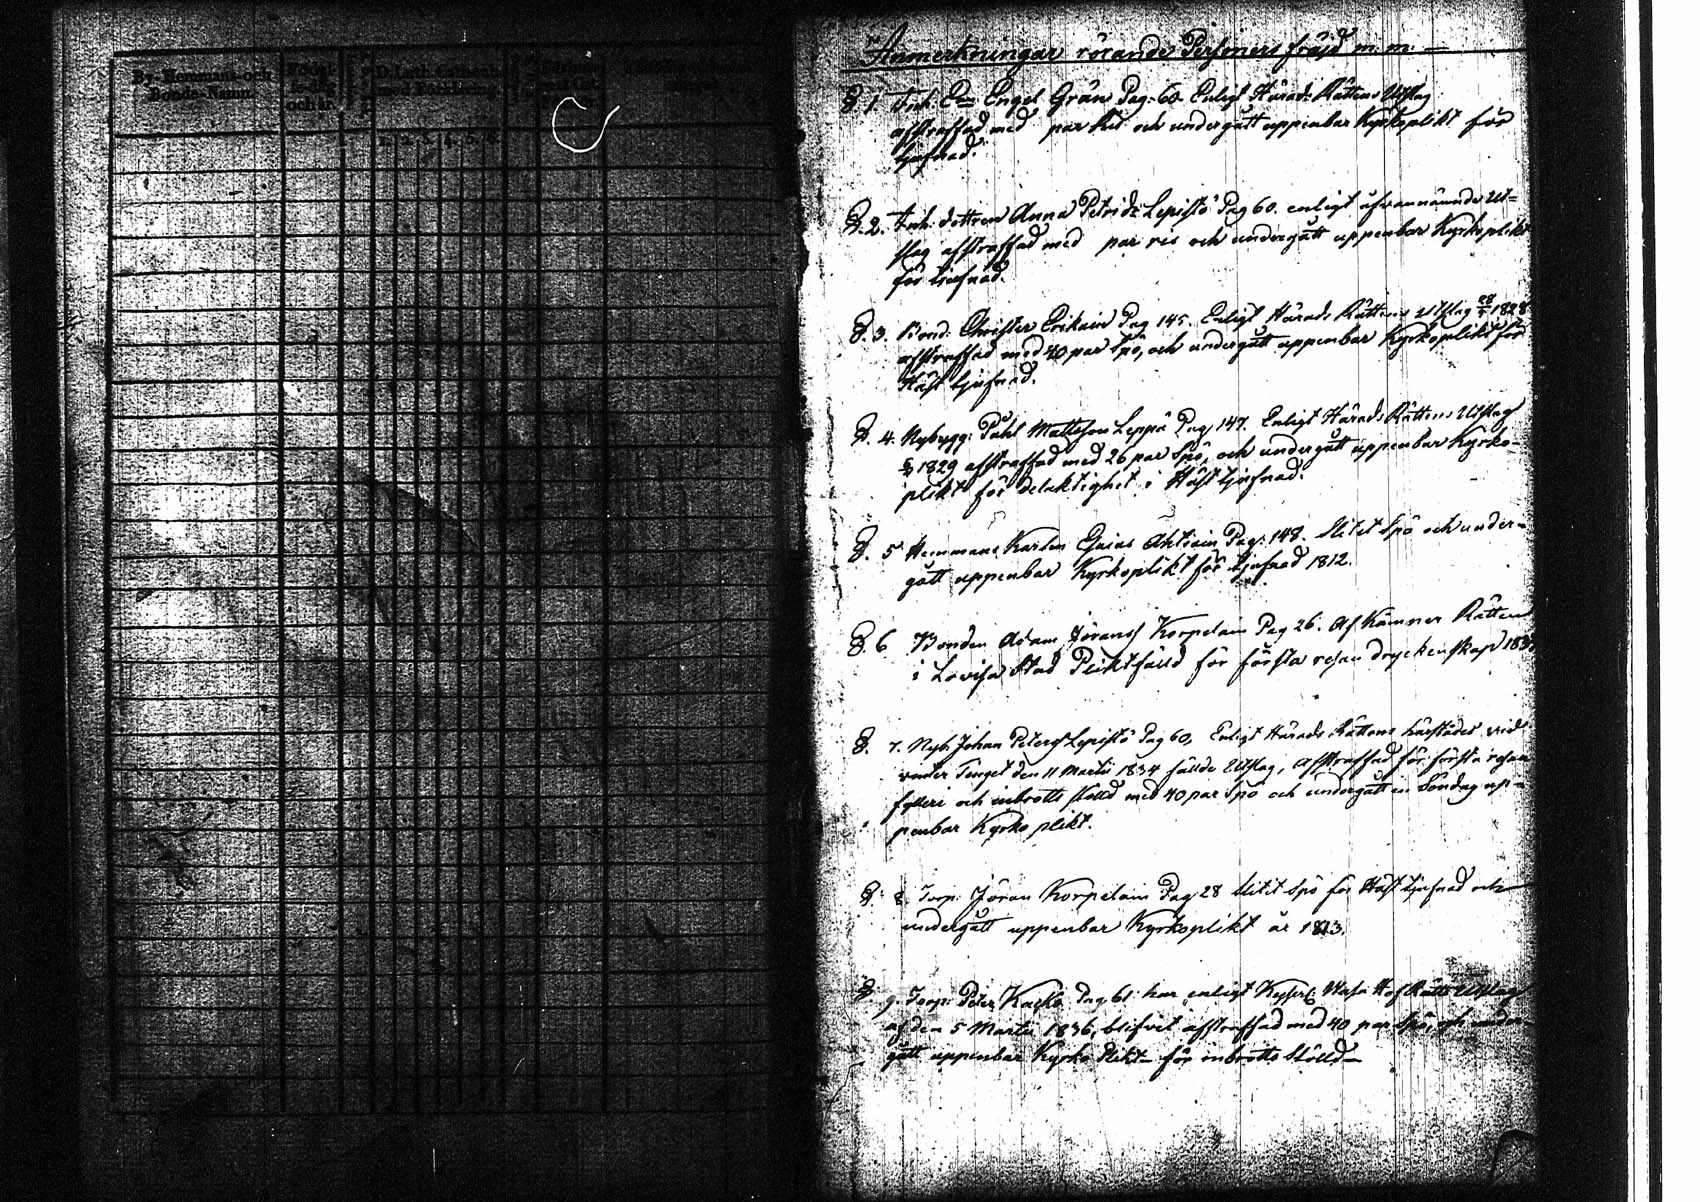 By- Hemmans- och
Bonde-Namn.
och år.
1. 2. 3. 4. 5. 6.
Anmerkningar rörande Persjoners fräjd m. m.
§ 1. Inh. Engel Grån Pag: 60. Enligt Härads Rättens Utslag
afstraffad med par Ris och undergått uppenbar Kyrkoplikt för
tjufnad.
§. 2. Inh. dottren Anna Petrids: Lepistö Pag 60. enligt ofvannämnde Ut-
slag afstraffad med par ris och undergått uppenbar Kyrkoplikt
för tjufnad.
§. 3. Bond. Christer Erikain Pag 145. Enligt Härads Rättens Utslag 1828
afstraffad med 40 par Spö, och undergått uppenbar Kyrkoplikt för
Häst tjufnad.
§. 4. Nybygg: Påhl Mattsson Leppä Pag. 147. Enligt Härads Rättens Utslag
1829 afstraffad med 26 par Spö, och undergått uppenbar Kyrko-
plikt för delaktighet i Häst tjufnad.
§. 5. Hemmans Karlen Ahtiain Pag: 148. Slitit Spö och under-
gått uppenbar Kyrkoplikt för tjufnad 1812.
§. 6 Bonden Adam Jöranss Korpelain Pag 26. Af Kämner Rätten
i Lovisa Stad Pliktfälld för första resan dryckenskap
§. 7. Nyb. Johan Peterss Lepistö Pag 60, Enligt Härads Rättens härstädes vid
vinter Tinget den 11 Martii 1834 fällde Utslag, afstraffad för första resan
fylleri och inbrotts stöld med 40 par Spö och undergått en Söndag up-
penbar Kyrko plikt.
§. 8. Torp: Jöran Korpelain Pag 28 slitit Spö för Häst tjufnad och
undergått uppenbar Kyrkoplikt år 1813.
§ 9. Torp: Peter Pag 61: har enligt Kejserl. Wasa Hof Rätts Utslag
af den 5 Martii 1836, blifvit afstraffad med 40 par Spö, och under-
gått uppenbar Kyrko Plikt för inbrotts Stöld